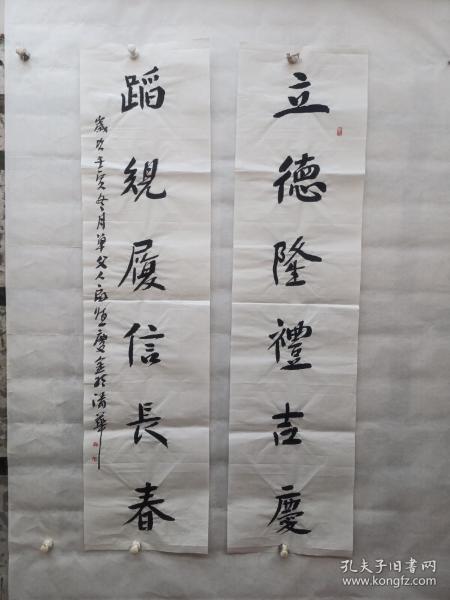 立德隆禮吉慶
蹈規履信長春
歲次壬寅冬月單父人
孔夫子旧书网
www.kongfz.com